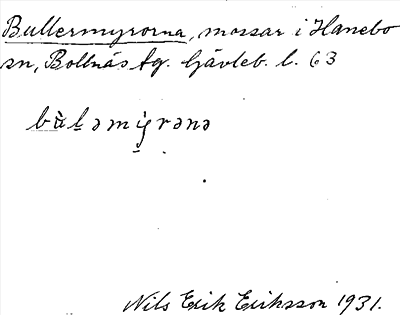 Bullermyrorna, mossar i Hanebo
sn, Bollnäs tg. Gävleb. l. 63
bùl̠əmỳ̠rənə
Nils Erik Eriksson 1931.